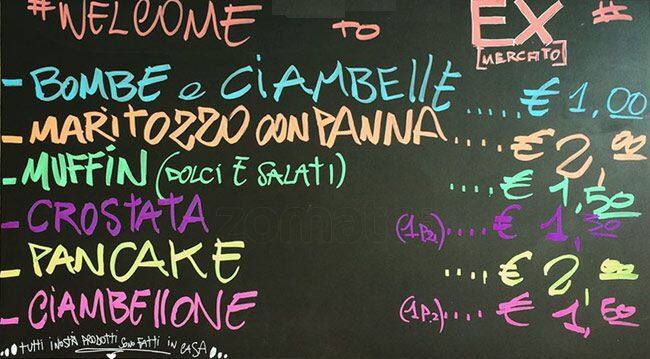 #WELCOME TO EX #
MERCATO
- BOMBE e CIAMBELLE ..... € 1,00
- MARITOZZO CON PANNA ..... € 2,00
- MUFFIN (DOLCI E SALATI) ..... € 1,50
- CROSTATA (1 Pz.) ..... € 1,50
- PANCAKE ..... € 2,00
- CIAMBELLONE (1 P.z.) .... € 1,50
TUTTI I NOSTRI PRODOTTI SONO FATTI IN CASA